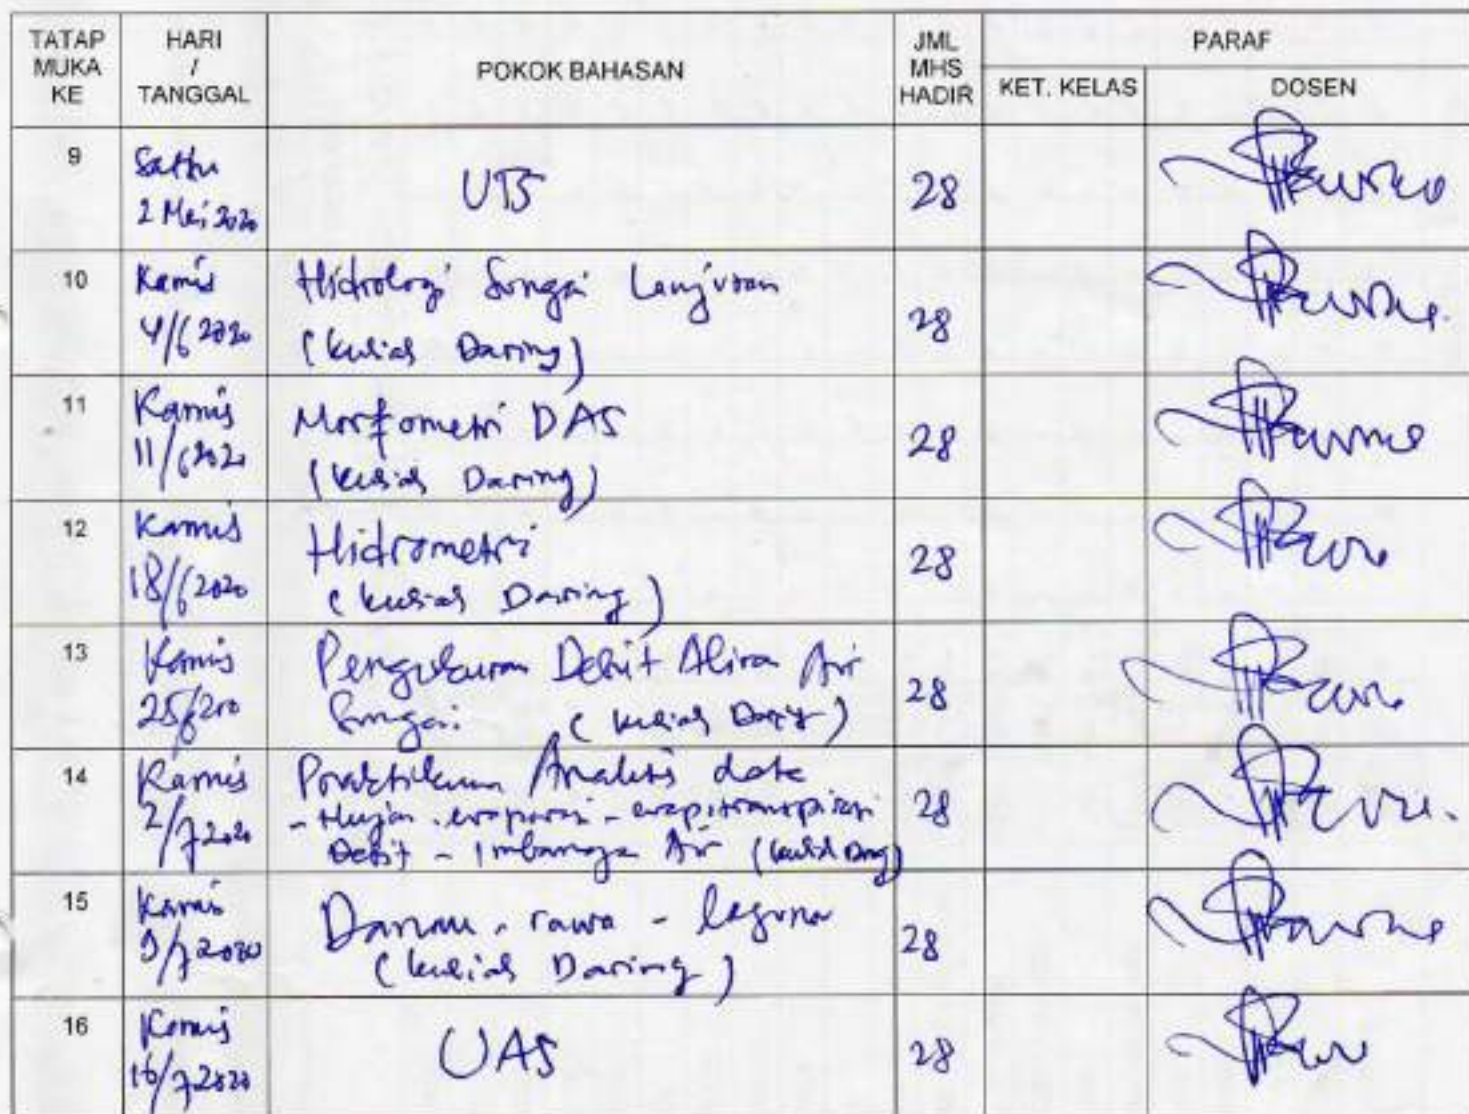 TATAP MUKA KE
HARI / TANGGAL
POKOK BAHASAN
JML MHS HADIR
PARAF
KET. KELAS
DOSEN
9
Sabtu
2 Mei 2020
UTS
28
10
Kamis
4/6 2020
Hidrologi Sungai Lanjutan
(kuliah Daring)
28
11
Kamis
11/6 2020
Morfometri DAS
(kuliah Daring)
28
12
Kamis
18/6 2020
Hidrometri
(kuliah Daring)
28
13
Kamis
25/6
Pengukuran Debit Aliran Air
Sungai (kuliah Daring)
28
14
Kamis
2/7 2020
Praktikum Analisis data
- Hujan - evaporasi - evapotranspirasi
Debit - Imbangan Air (kuliah
28
15
Kamis
9/7 2020
Danau - rawa - laguna
(kuliah Daring)
28
16
Kamis
16/7 2020
UAS
28